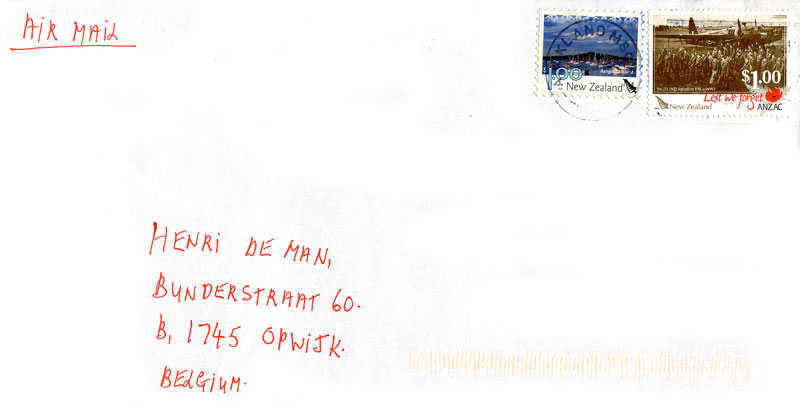 AIR MAIL
1.00
New Zealand
$1.00
Lest we forget
New Zealand ANZAC
HENRI DE MAN,
BUNDERSTRAAT 60.
B, 1745 OPWIJK.
BELGIUM.